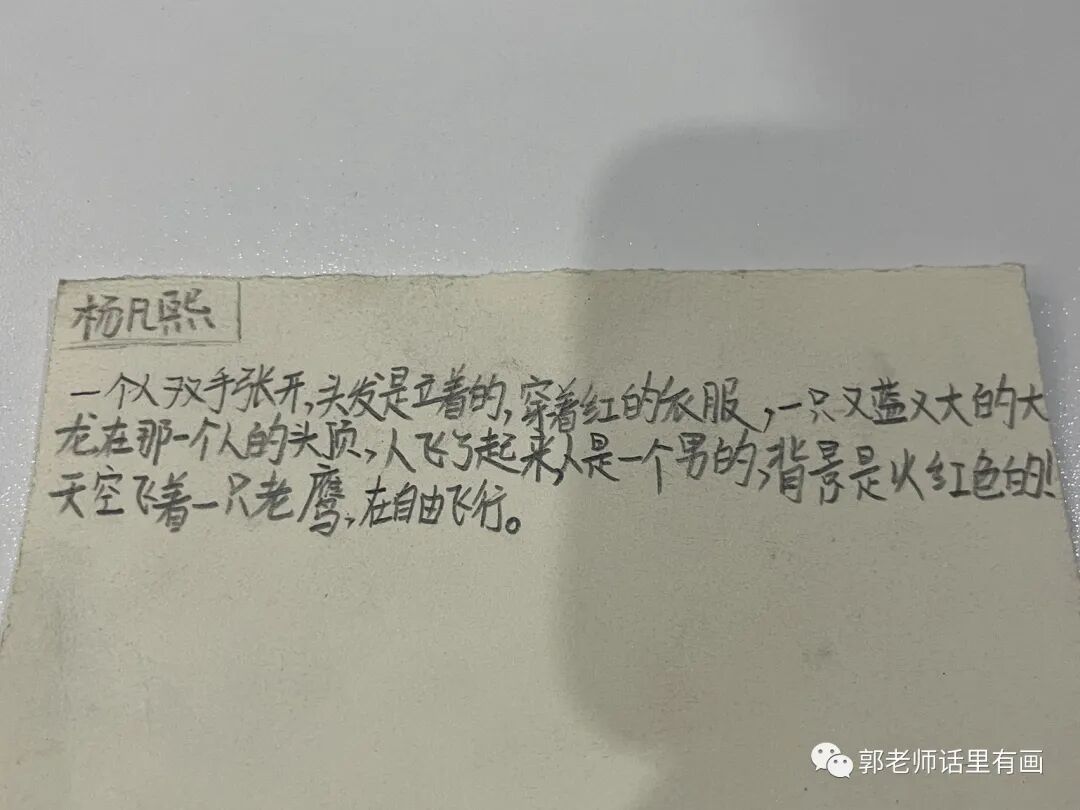 杨凡熙
一个人双手张开,头发是立着的,穿着红的衣服,一只又蓝又大的大
龙在那一个人的头顶,人飞了起来,人是一个男的,背景是火红色的!
天空飞着一只老鹰,在自由飞行。
郭老师话里有画